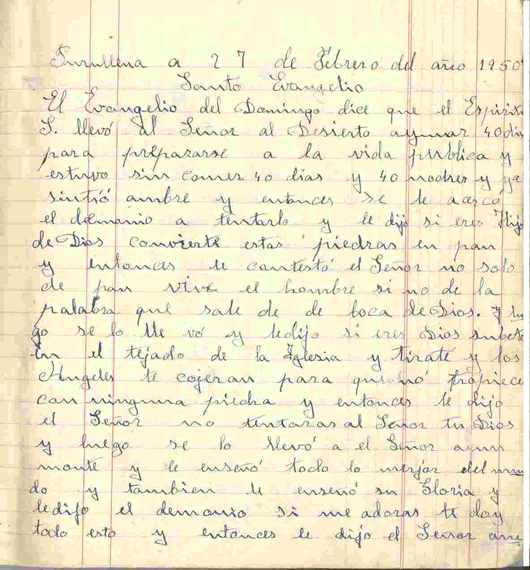 Purullena a 27 de Febrero del año 1950
Santo Evangelio
El Evangelio del Domingo dice que el Espiritu
S. llevó al Señor al Desierto aymar 40 dias
para prepararse a la vida publica y
estuvo sin comer 40 dias y 40 noches y ya
sintió ambre y entonces se le acercó
el demonio a tentarlo y le dijo si eres Hijo
de Dios convierte estas piedras en pan
y entonces le contestó el Señor no solo
de pan vive el hombre si no de la
palabra que sale de de boca de Dios. y lue
go se lo lle vo y ledijo si eres Dios subete
en el tejado de la Iglesia y tirate y los
Angeles te cojeran para que no tropiece
con ninguna piedra y entonces le dijo
el Señor no tentaras al Señor tu Dios
y luego se lo llevó a el Señor a un
monte y le enseñó todo lo mejor del mun
do y tambien le enseñó su Gloria y
ledijo el demonio si me adoras te doy
todo esto y entonces le dijo el Señor